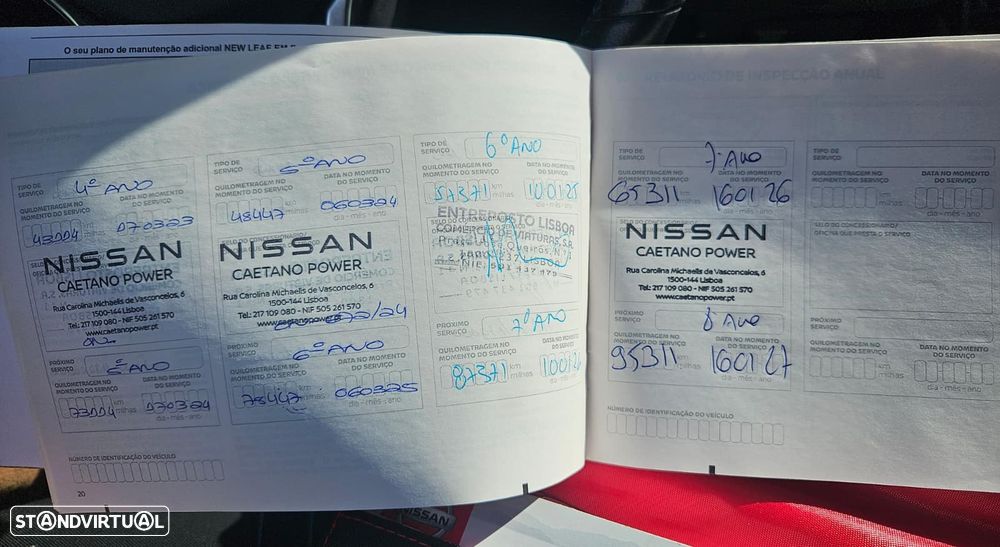 O seu plano de manutenção adicional NEW LEAF EM
RELATÓRIO DE INSPECÇÃO ANUAL
TIPO DE SERVIÇO
4º ANO
QUILOMETRAGEM NO MOMENTO DO SERVIÇO
DATA NO MOMENTO DO SERVIÇO
43004
070323
NISSAN
CAETANO POWER
Rua Carolina Michaelis de Vasconcelos, 6
1500-144 Lisboa
Tel: 217 109 080 - NIF 505 261 570
www.caetanopower.pt
PRÓXIMO SERVIÇO
5º ANO
QUILOMETRAGEM NO MOMENTO DO SERVIÇO
DATA NO MOMENTO DO SERVIÇO
73004
milhas
070324
dia - mês - ano
NÚMERO DE IDENTIFICAÇÃO DO VEÍCULO
20
TIPO DE SERVIÇO
5º ANO
QUILOMETRAGEM NO MOMENTO DO SERVIÇO
DATA NO MOMENTO DO SERVIÇO
48447
milhas
060324
dia - mês - ano
NISSAN
CAETANO POWER
Rua Carolina Michaelis de Vasconcelos, 6
1500-144 Lisboa
Tel: 217 109 080 - NIF 505 261 570
www.caetanopower.pt
PRÓXIMO SERVIÇO
6º ANO
QUILOMETRAGEM NO MOMENTO DO SERVIÇO
DATA NO MOMENTO DO SERVIÇO
78447
milhas
060325
dia - mês - ano
TIPO DE SERVIÇO
6º ANO
QUILOMETRAGEM NO MOMENTO DO SERVIÇO
DATA NO MOMENTO DO SERVIÇO
57371
km
milhas
100125
dia - mês - ano
ENTREPOSTO LISBOA
COMÉRCIO DE VIATURAS, S.A.
PRÓXIMO SERVIÇO
7º ANO
QUILOMETRAGEM NO MOMENTO DO SERVIÇO
DATA NO MOMENTO DO SERVIÇO
87371
km
milhas
dia - mês - ano
TIPO DE SERVIÇO
7º Ano
QUILOMETRAGEM NO MOMENTO DO SERVIÇO
DATA NO MOMENTO DO SERVIÇO
65311
km
milhas
160126
dia - mês - ano
NISSAN
CAETANO POWER
Rua Carolina Michaelis de Vasconcelos, 6
1500-144 Lisboa
Tel: 217 109 080 - NIF 505 261 570
www.caetanopower.pt
PRÓXIMO SERVIÇO
8º Ano
QUILOMETRAGEM NO MOMENTO DO SERVIÇO
DATA NO MOMENTO DO SERVIÇO
95311
km
milhas
160127
dia - mês - ano
NÚMERO DE IDENTIFICAÇÃO DO VEÍCULO
TIPO DE SERVIÇO
QUILOMETRAGEM NO MOMENTO DO SERVIÇO
DATA NO MOMENTO DO SERVIÇO
km
milhas
dia - mês - ano
SELO DO CONCESSIONÁRIO / OFICINA QUE PRESTA O SERVIÇO
PRÓXIMO SERVIÇO
QUILOMETRAGEM NO MOMENTO DO SERVIÇO
DATA NO MOMENTO DO SERVIÇO
km
milhas
dia - mês - ano
NISSAN
STANDVIRTUAL